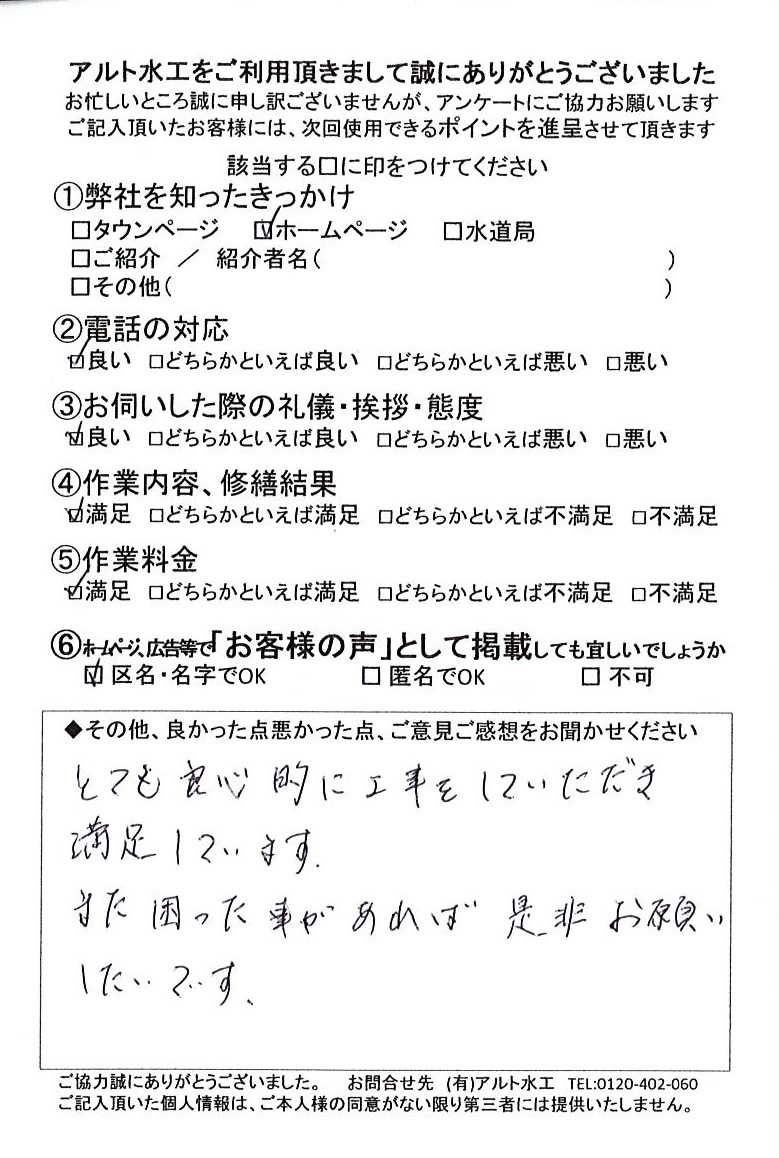 アルト水工をご利用頂きまして誠にありがとうございました
お忙しいところ誠に申し訳ございませんが、アンケートにご協力お願いします
ご記入頂いたお客様には、次回使用できるポイントを進呈させて頂きます
該当する□に印をつけてください
①弊社を知ったきっかけ
□タウンページ ☑ホームページ □水道局
□ご紹介 ／ 紹介者名( )
□その他( )
②電話の対応
☑良い □どちらかといえば良い □どちらかといえば悪い □悪い
③お伺いした際の礼儀・挨拶・態度
☑良い □どちらかといえば良い □どちらかといえば悪い □悪い
④作業内容、修繕結果
☑満足 □どちらかといえば満足 □どちらかといえば不満足 □不満足
⑤作業料金
☑満足 □どちらかといえば満足 □どちらかといえば不満足 □不満足
⑥ホームページ、広告等で「お客様の声」として掲載しても宜しいでしょうか
☑ 区名・名字でOK □ 匿名でOK □ 不可
◆その他、良かった点悪かった点、ご意見ご感想をお聞かせください
とても良心的に工事をしていただき
満足しています。
また困った事があれば是非お願い
したいです。
ご協力誠にありがとうございました。 お問合せ先 (有)アルト水工 TEL:0120-402-060
ご記入頂いた個人情報は、ご本人様の同意がない限り第三者には提供いたしません。